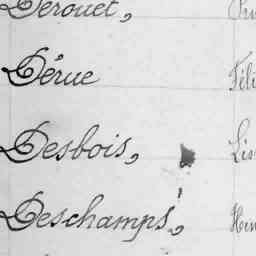 Derouet,
Dérue Féli
Desbois, Lis
Deschamps,